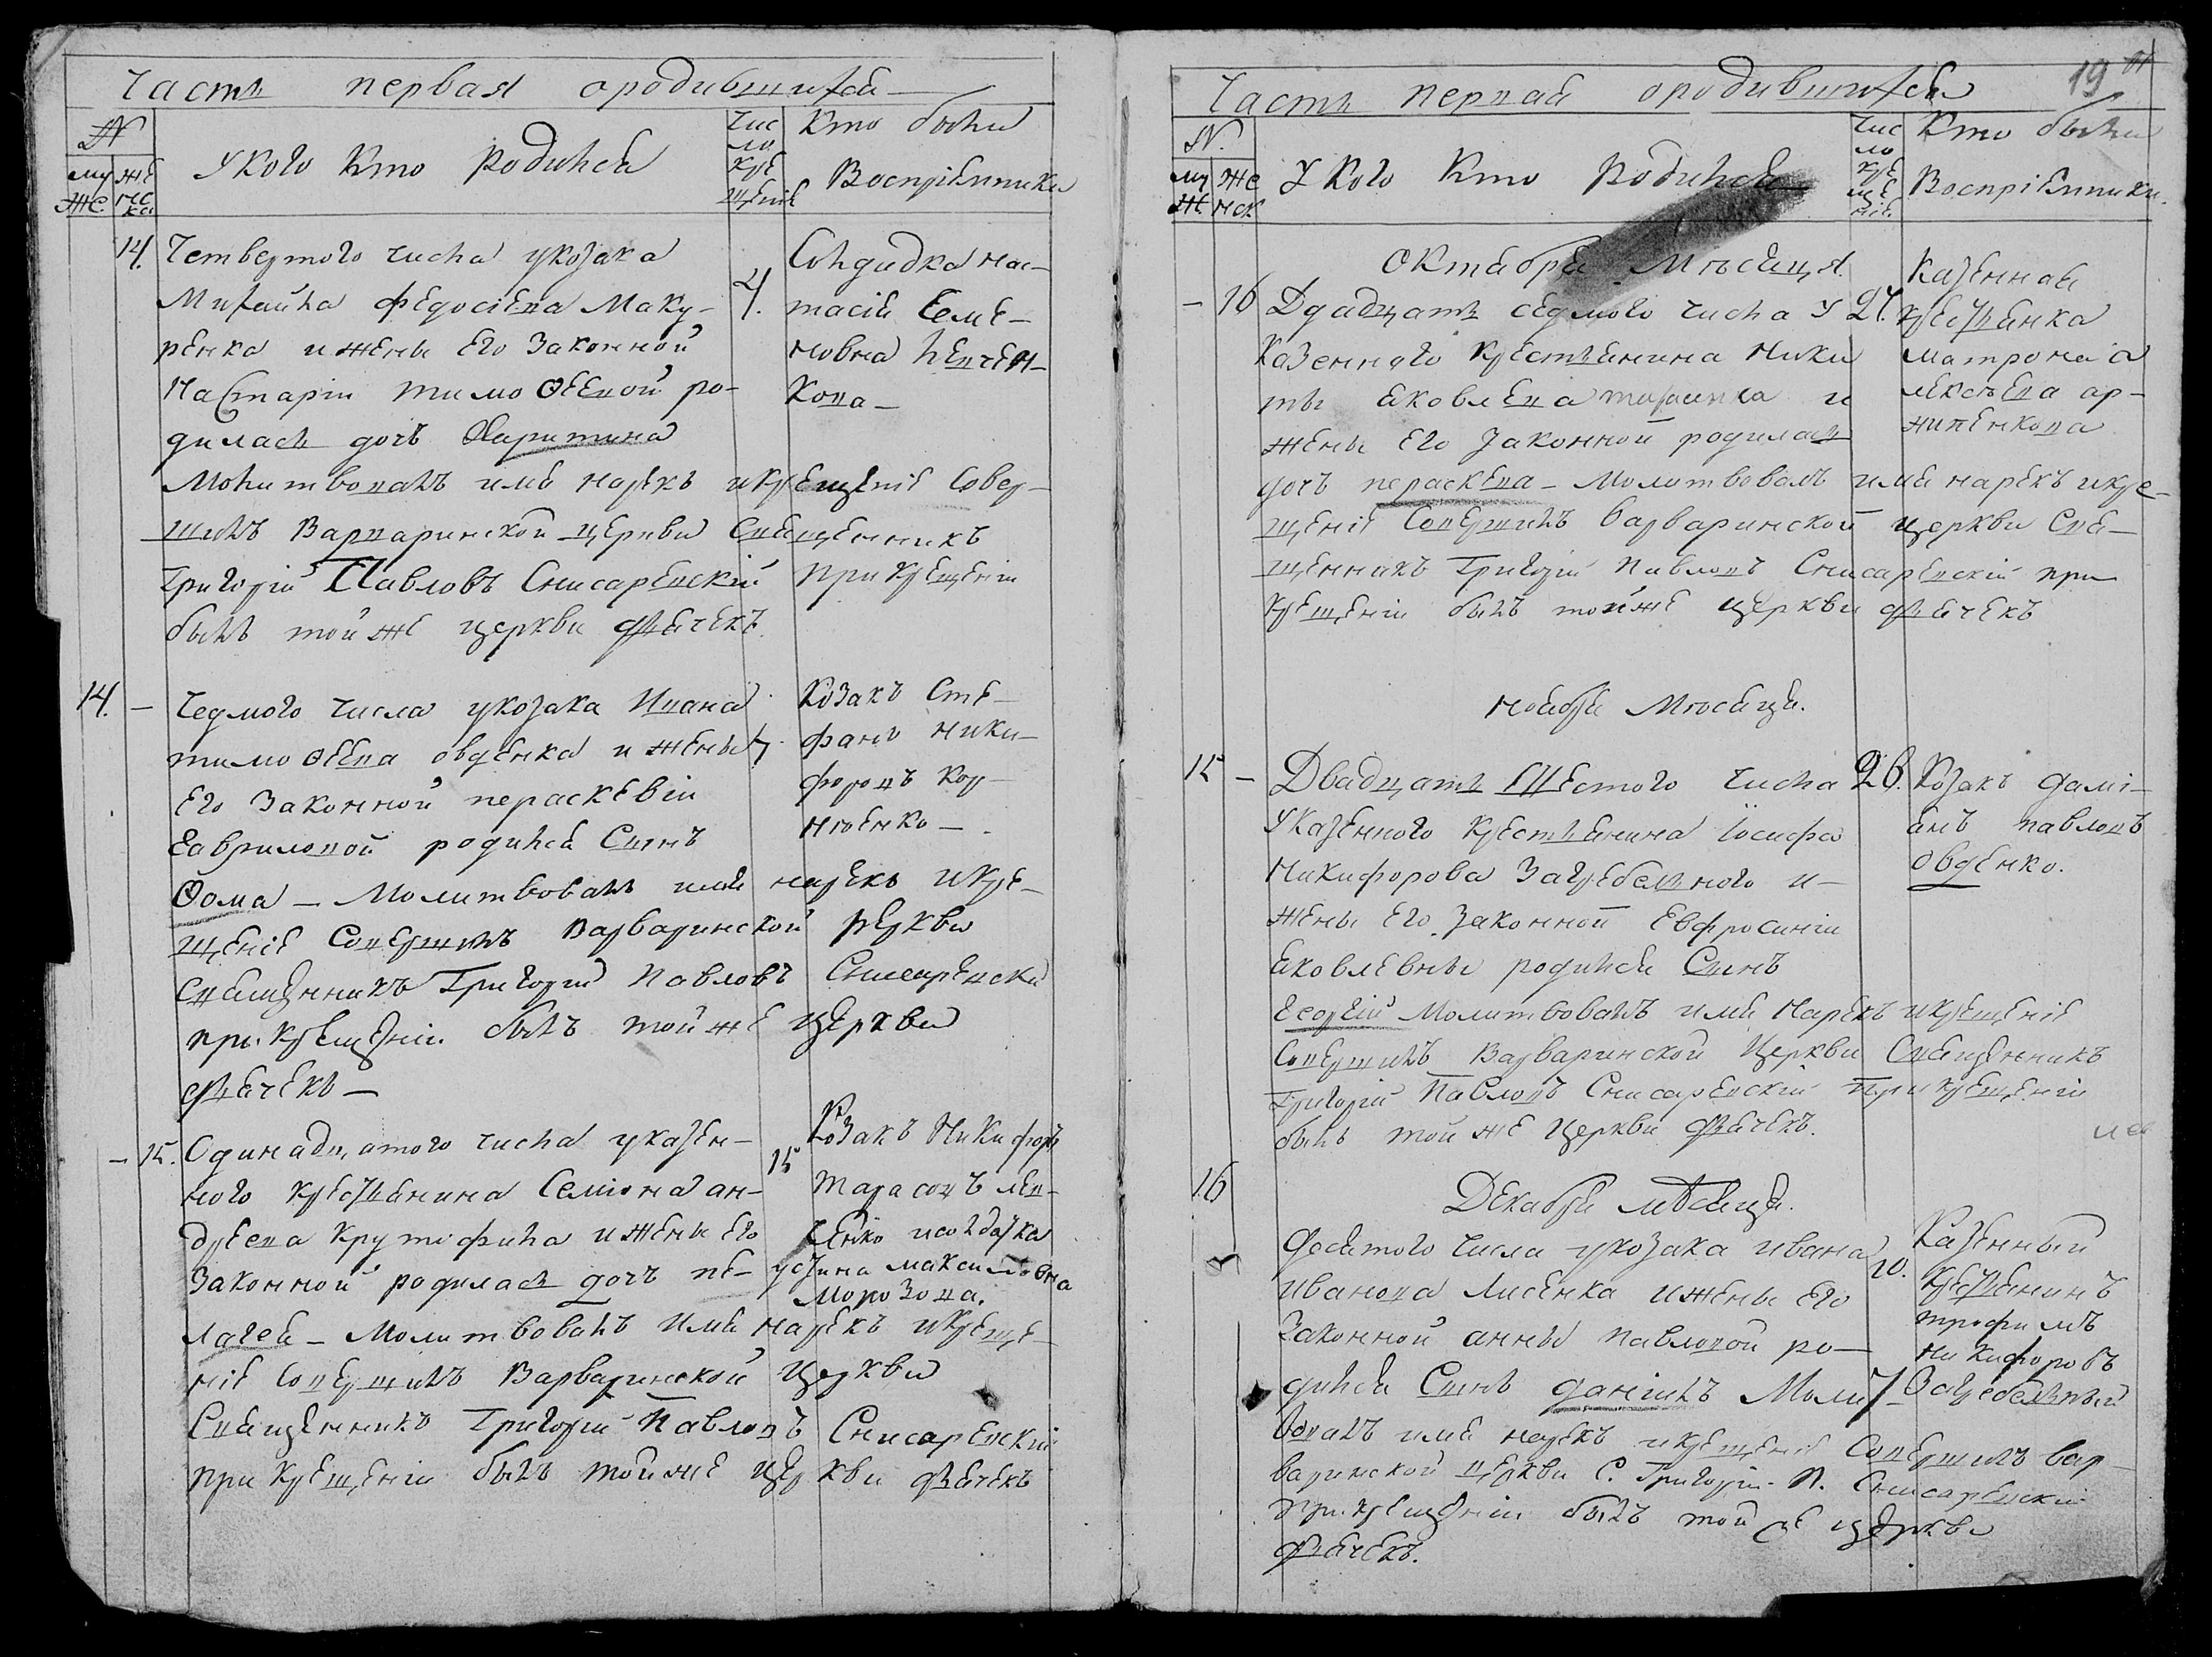 Часть первая о родившихся
№ | У кого кто родился | Чис ло кре щенія | Кто были Воспріемники
муж. | женска
14. Четвертого числа у козака
Михайла Федосіева Маку-
ренка и жены его законной
Настасіи Тимоѳеевой ро-
дилась дочь Харитина
Молитвовалъ имя нарекъ и крещеніе совер-
шилъ Варваринской церкви священникъ
Григорій Павловъ Снисаревскій при крещеніи
былъ той же церкви дьячекъ.
4.
Солдадка Нас-
тасія Семе-
новна
кова —
14. — Седмого числа у козака Ивана
Тимоѳеева Овдѣнка и жены
его законной Параскевіи
Гавриловой родился сынъ
Ѳома — Молитвовалъ имя нарекъ и кре-
щеніе совершилъ Варваринской церкви
священникъ Григорій Павловъ Снисаревскій
при крещеніи былъ той же церкви
дьячекъ —
7.
Козакъ Сте-
фанъ Ники-
форовъ Кор-
нѣенко —
— 15. Одинадцатого числа у казен-
ного крестьянина Семіона Ан-
дреева Крутофила и жены его
законной родилась дочь Пе-
лагея — Молитвовалъ имя нарекъ и креще-
ніе совершилъ Варваринской церкви
священникъ Григорій Павловъ Снисаревскій
при крещеніи былъ той же церкви дьячекъ
15
Козакъ Никифоръ
Тарасовъ Лев-
ченко и солдатка
Устина Максимовна
Морозова.
19
Часть первая о родившихся
№. | У кого кто родился | Чис ло кре ще ніе | Кто были Воспріемники.
муж. | женск
Октября Мѣсяця.
— 16 Двадцать седмого числа у
казенного крестьянина Ники
ты Яковлева и
жены его законной родилась
дочь Параскева — Молитвовалъ имя нарекъ и кре-
щеніе совершилъ Варваринской церкви свя-
щенникъ Григорій Павловъ Снисаревскій при
крещеніи былъ той же церкви дьячекъ
27.
Казенная
крестьянка
Матрона А
лексѣева Ар-
хипенкова
Ноября Мѣсяця.
15 — Двадцать Шестого числа
у казенного крестьянина Іосифа
Никифорова Загребельного и —
жены его законной Евфросиніи
Яковлевны родился сынъ
Георгій Молитвовалъ имя нарекъ и крещеніе
совершилъ Варваринской церкви священникъ
Григорій Павловъ Снисаревскій при крещеніи
былъ той же церкви дьячекъ.
26.
Козакъ Дамі-
янъ Павловъ
Овдѣнко.
Декабря мѣсяця.
16 Десятого числа у козака Ивана
Иванова Лисенка и жены его
законной Анны Павловой ро —
дился сынъ Даніилъ Молит-
вовалъ имя нарекъ и крещеніе совершилъ Вар-
варинской церкви С. Григорій П. Снисаревскій
при крещеніи былъ той же церкви
дьячекъ.
10.
Казенный
крестьянинъ
Трофимъ
Никифоровъ
Загребельный